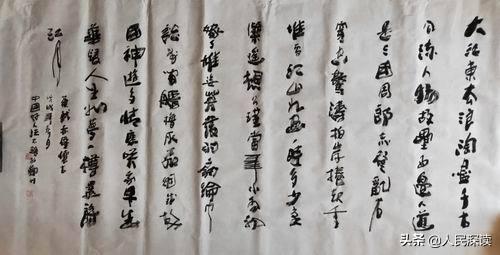 大江東去浪淘盡千古
風流人物故壘西邊人道
是三國周郎赤壁亂石
穿空驚濤拍岸捲起千
堆雪江山如畫一時多少豪
傑遙想公瑾當年小喬初
嫁了雄姿英發羽扇綸巾
談笑間檣櫓灰飛煙滅故
國神遊多情應笑我早生
華髮人生如夢一樽還酹
江月
蘇軾赤壁懷古
戊戌年
中國
头条 @人民深读